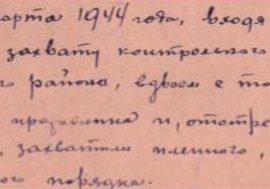 арта 1944 года, входя
захвату контрольного
го района, вдвоем с то
и, отстре
, захватили пленного,
ого порядка.